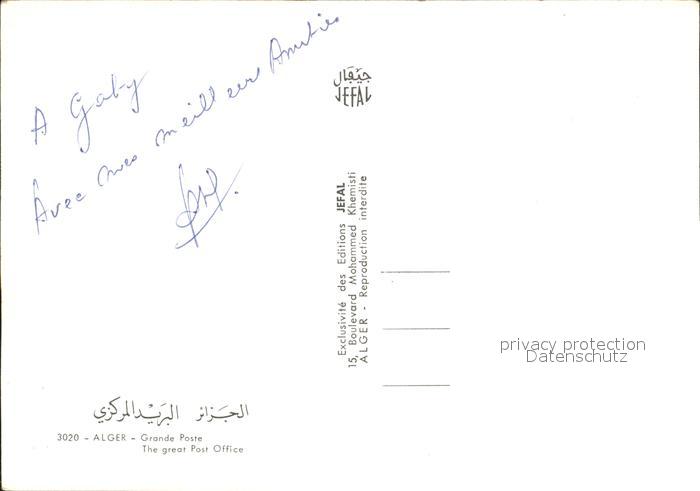 A Gaby
Avec mes meilleures Amitiés
جيفال
JEFAL
Exclusivité des Editions JEFAL
15, Boulevard Mohammed Khemisti
ALGER - Reproduction interdite
privacy protection
Datenschutz
الجزائر البريد المركزي
3020 - ALGER - Grande Poste
The great Post Office